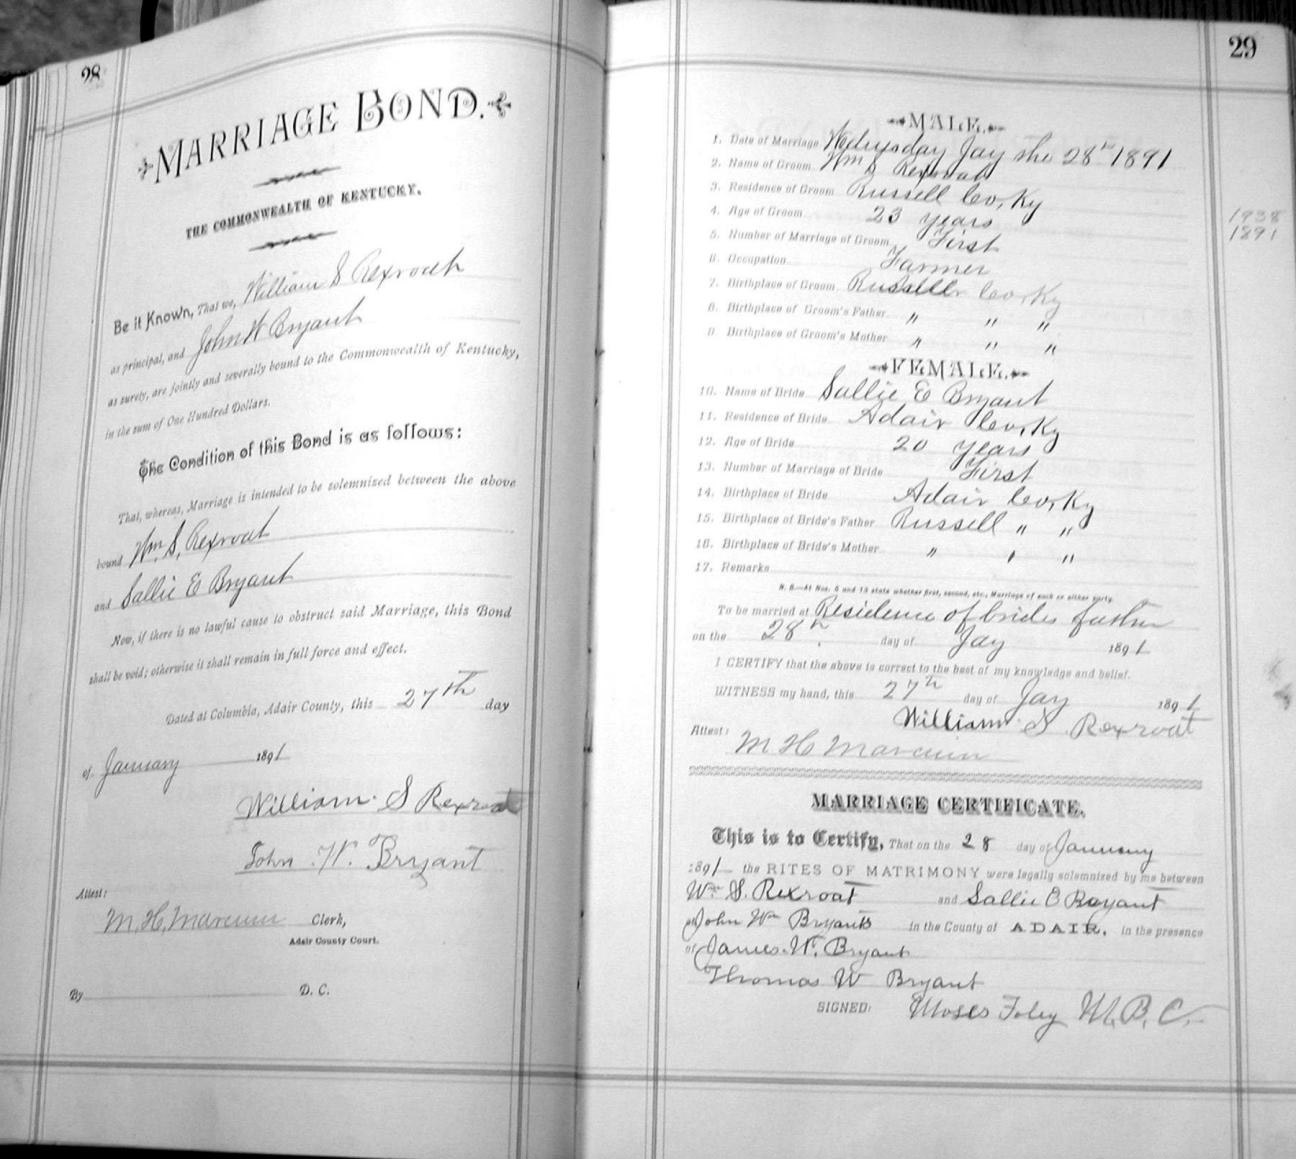 28
MARRIAGE BOND.
THE COMMONWEALTH OF KENTUCKY.
Be it Known, That we, William S Rexroat
as principal, and John W Bryant
as surety, are jointly and severally bound to the Commonwealth of Kentucky,
in the sum of One Hundred Dollars.
The Condition of this Bond is as follows:
That, whereas, Marriage is intended to be solemnized between the above
bound Wm. S. Rexroat
and Sallie E Bryant
Now, if there is no lawful cause to obstruct said Marriage, this Bond
shall be void; otherwise it shall remain in full force and effect.
Dated at Columbia, Adair County, this 27th day
of January 1891
William. S Rexroat
John. W. Bryant
Attest:
M. H. Marcum Clerk,
Adair County Court.
By D. C.
29
MALE.
1. Date of Marriage Wednysday Jay the 28th 1891
2. Name of Groom Wm S Rexroat
3. Residence of Groom Russell Co, Ky
4. Age of Groom 23 years
5. Number of Marriage of Groom First
6. Occupation Farmer
7. Birthplace of Groom Russell Co, Ky
8. Birthplace of Groom's Father " " "
9. Birthplace of Groom's Mother " " "
1938
1891
FEMALE.
10. Name of Bride Sallie E Bryant
11. Residence of Bride Adair Co, Ky
12. Age of Bride 20 years
13. Number of Marriage of Bride First
14. Birthplace of Bride Adair Co, Ky
15. Birthplace of Bride's Father Russell " "
16. Birthplace of Bride's Mother " " "
17. Remarks
N. B.—At Nos. 5 and 13 state whether first, second, etc., Marriage of each or either party.
To be married at Residence of brides father
on the 28th day of Jay 1891
I CERTIFY that the above is correct to the best of my knowledge and belief.
WITNESS my hand, this 27th day of Jay 1891
William S Rexroat
Attest: M H Marcum
MARRIAGE CERTIFICATE.
This is to Certify, That on the 28 day of January
1891 the RITES OF MATRIMONY were legally solemnized by me between
Wm S. Rexroat and Sallie E Bryant
at John Wm Bryants in the County of ADAIR, in the presence
of James. W. Bryant
Thomas W Bryant
SIGNED: Moses Foley M. B. C.